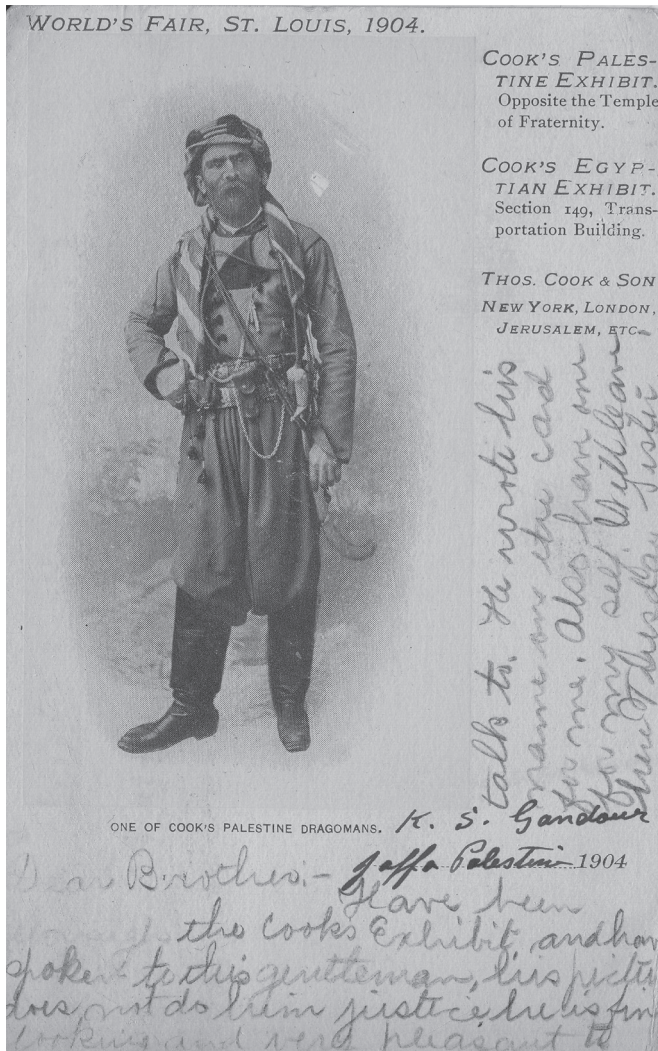 WORLD'S FAIR, ST. LOUIS, 1904.
COOK'S PALES-
TINE EXHIBIT.
Opposite the Temple
of Fraternity.
COOK'S EGYP-
TIAN EXHIBIT.
Section 149, Trans-
portation Building.
THOS. COOK & SON
NEW YORK, LONDON,
JERUSALEM, ETC.
ONE OF COOK'S PALESTINE DRAGOMANS.
K. S. Gandour
Jaffa Palestine 1904
Dear Brother:- Have been
the Cooks Exhibit, and hav
spoken to this gentleman, his pictu
does not do him justice he is fin
looking and very pleasant to
talk to. He wrote his
name on the card
for me. Also have one
for my self. Will leave
here Tuesday Sister